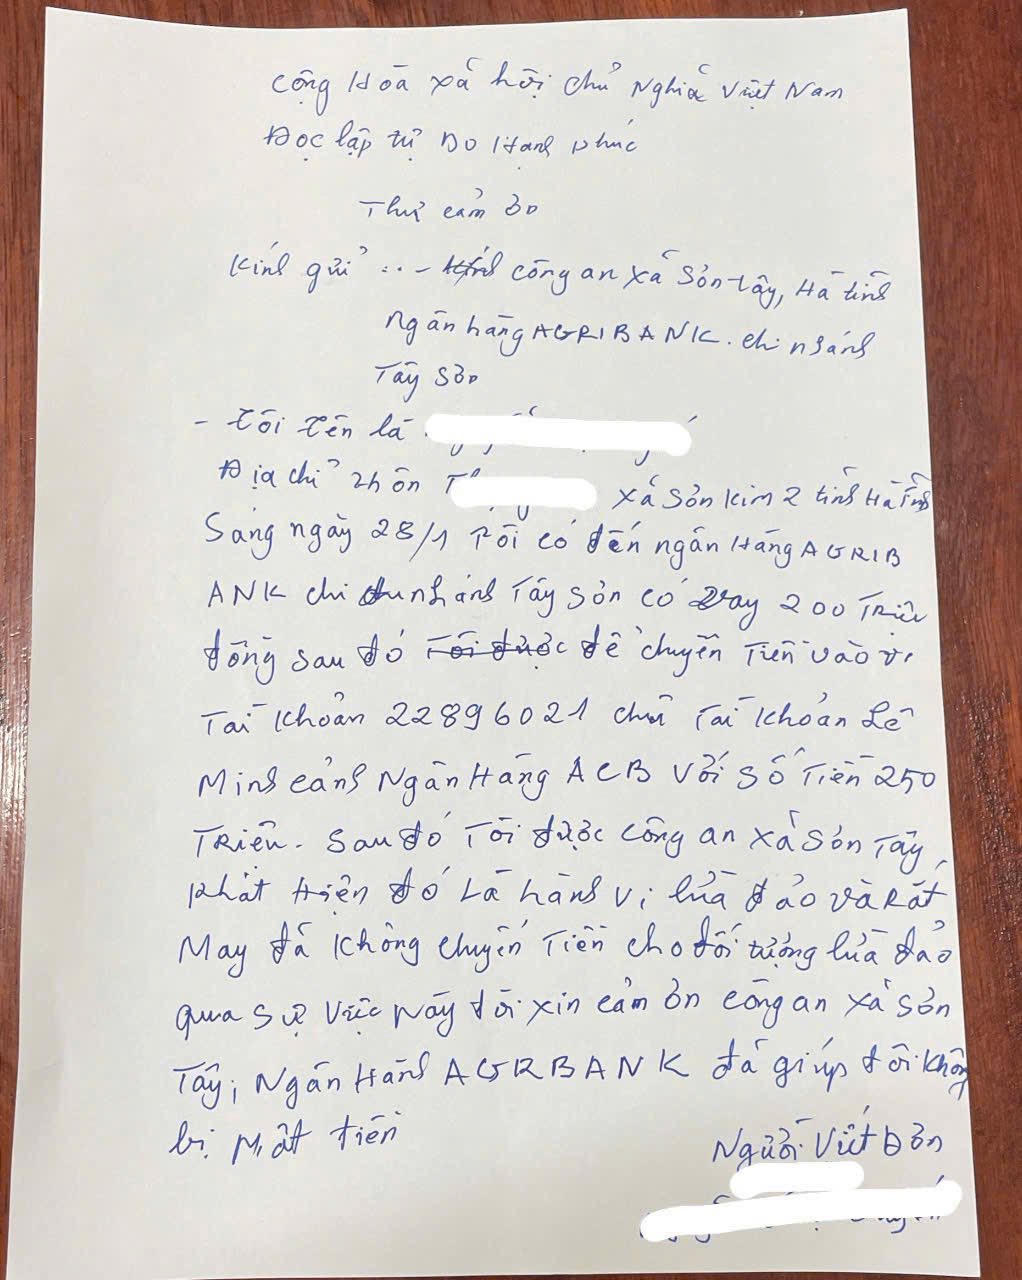 Cộng Hòa xã hội chủ Nghĩa Việt Nam
Độc lập tự Do Hạnh phúc
Thư cảm ơn
Kính gửi : - Kính công an xã Sơn Tây, Hà tĩnh
Ngân hàng AGRIBANK. chi nhánh
Tây Sơn
- Tôi tên là
Địa chỉ thôn T xã Sơn Kim 2 tỉnh Hà Tĩnh
Sáng ngày 28/1 Tôi có đến ngân Hàng AGRIB
ANK chi nhánh Tây Sơn có vay 200 Triệu
đồng sau đó Tôi được để chuyển Tiền vào
Tài Khoản 22896021 chủ Tài Khoản Lê
Minh cảnh Ngân Hàng ACB Với Số Tiền 250
Triệu. Sau đó Tôi được Công an xã Sơn Tây,
Phát Hiện đó Là hành vi lừa đảo và Rất
May đã Không chuyển Tiền cho đối tượng lừa đảo
qua sự Việc Này tôi xin cảm ơn công an xã Sơn
Tây, Ngân Hành AGRBANK đã giúp tôi không
bị Mất tiền
Người Viết Đơn